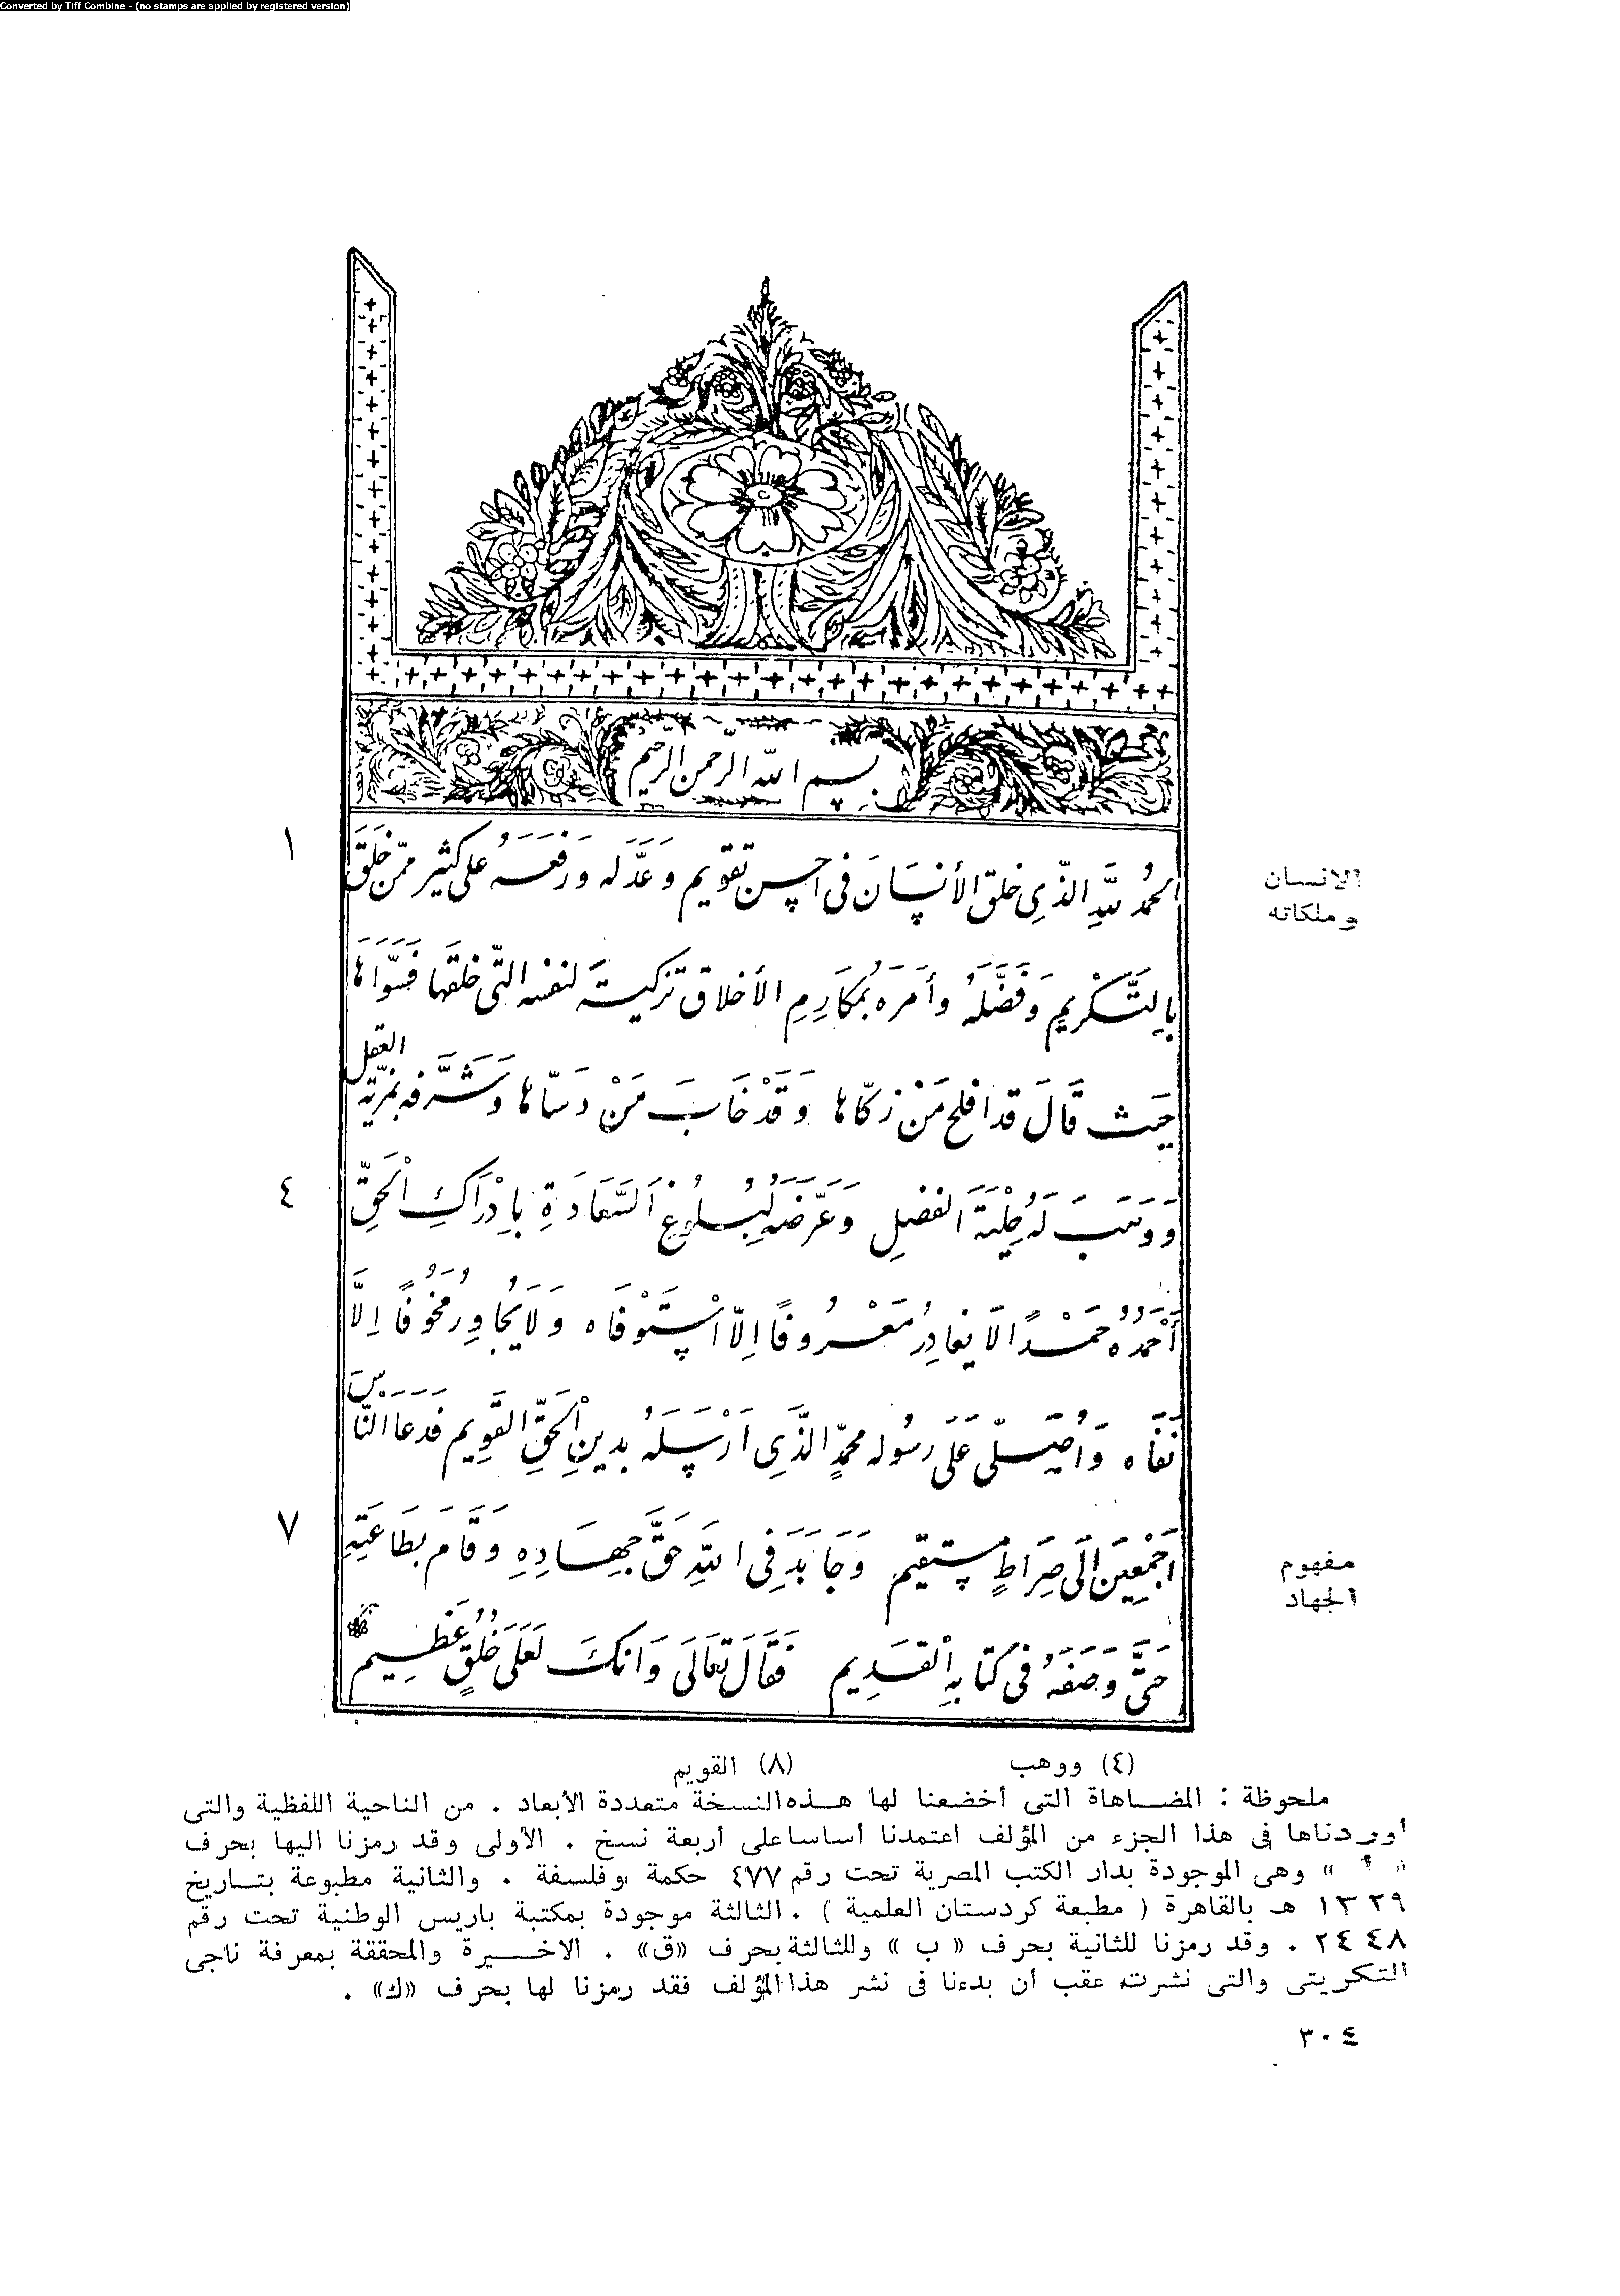 Converted by Tiff Combine - (no stamps are applied by registered version)
بسم الله الرحمن الرحيم
١
الحمدُ للّهِ الذّي خلق الأنسَان في احسن تقويم وَعَدَّلَه وَرَفعَهُ على كثير ممّن خَلَقَ
الانسان
وملكاته
بِالتَّكْريمِ وَفَضَّلَهُ وأمَرَه بمَكَارِمِ الأخلاق تزكيةً لنفسه التّي خلقها فَسَوّاهَا
حيث قَالَ قد افلح مَنْ زكّاها وَقَدْ خَابَ مَنْ دَسّاها وَشَرَّفه بمزيّة العقل
٤
وَوَهَبَ لَهُ حِلْيَةَ الفضلِ وَعَرَّضَهُ لِبُلُوغِ السَّعَادَةِ بِاِدْرَاكِ الْحَقِّ
أحْمَدُهُ حَمْدًا لَا يغَادِرُ مَعْرُوفًا اِلّا اسْتَوْفَاه وَلَا يُجَاوِرُ مَخُوفًا اِلَّا
نَفَاه وَاُصَلّى عَلَى رسُوله محمّدٍ الذَّي اَرْسَلَهُ بدينِ الْحَقِّ القَوِيمِ فَدَعَا النَّاسَ
٧
اَجْمَعِينَ اِلَى صِرَاطٍ مستقيم وَجَاهَدَ فِى اللّهِ حَقَّ جِهَادِهِ وَقَامَ بطَاعَتِهِ
مفهوم
الجهاد
حَتَّى وَصَفَهُ فى كتَابِهِ الْقَدِيم فَقَالَ تَعَالَى وَانكَ لَعَلَى خُلُقٍ عَظِيم
(٤) ووهب (٨) القويم
ملحوظة : المضاهاة التى أخضعنا لها هذه النسخة متعددة الأبعاد . من الناحية اللفظية والتى
أوردناها فى هذا الجزء من المؤلف اعتمدنا أساسا على أربعة نسخ . الأولى وقد رمزنا اليها بحرف
« أ » وهى الموجودة بدار الكتب المصرية تحت رقم ٤٧٧ حكمة وفلسفة . والثانية مطبوعة بتاريخ
١٣٢٩ هـ بالقاهرة ( مطبعة كردستان العلمية ) . الثالثة موجودة بمكتبة باريس الوطنية تحت رقم
٢٤٤٨ . وقد رمزنا للثانية بحرف « ب » وللثالثة بحرف «ق» . الاخيرة والمحققة بمعرفة ناجى
التكريتى والتى نشرت عقب أن بدءنا فى نشر هذا المؤلف فقد رمزنا لها بحرف «ك» .
٣٠٤